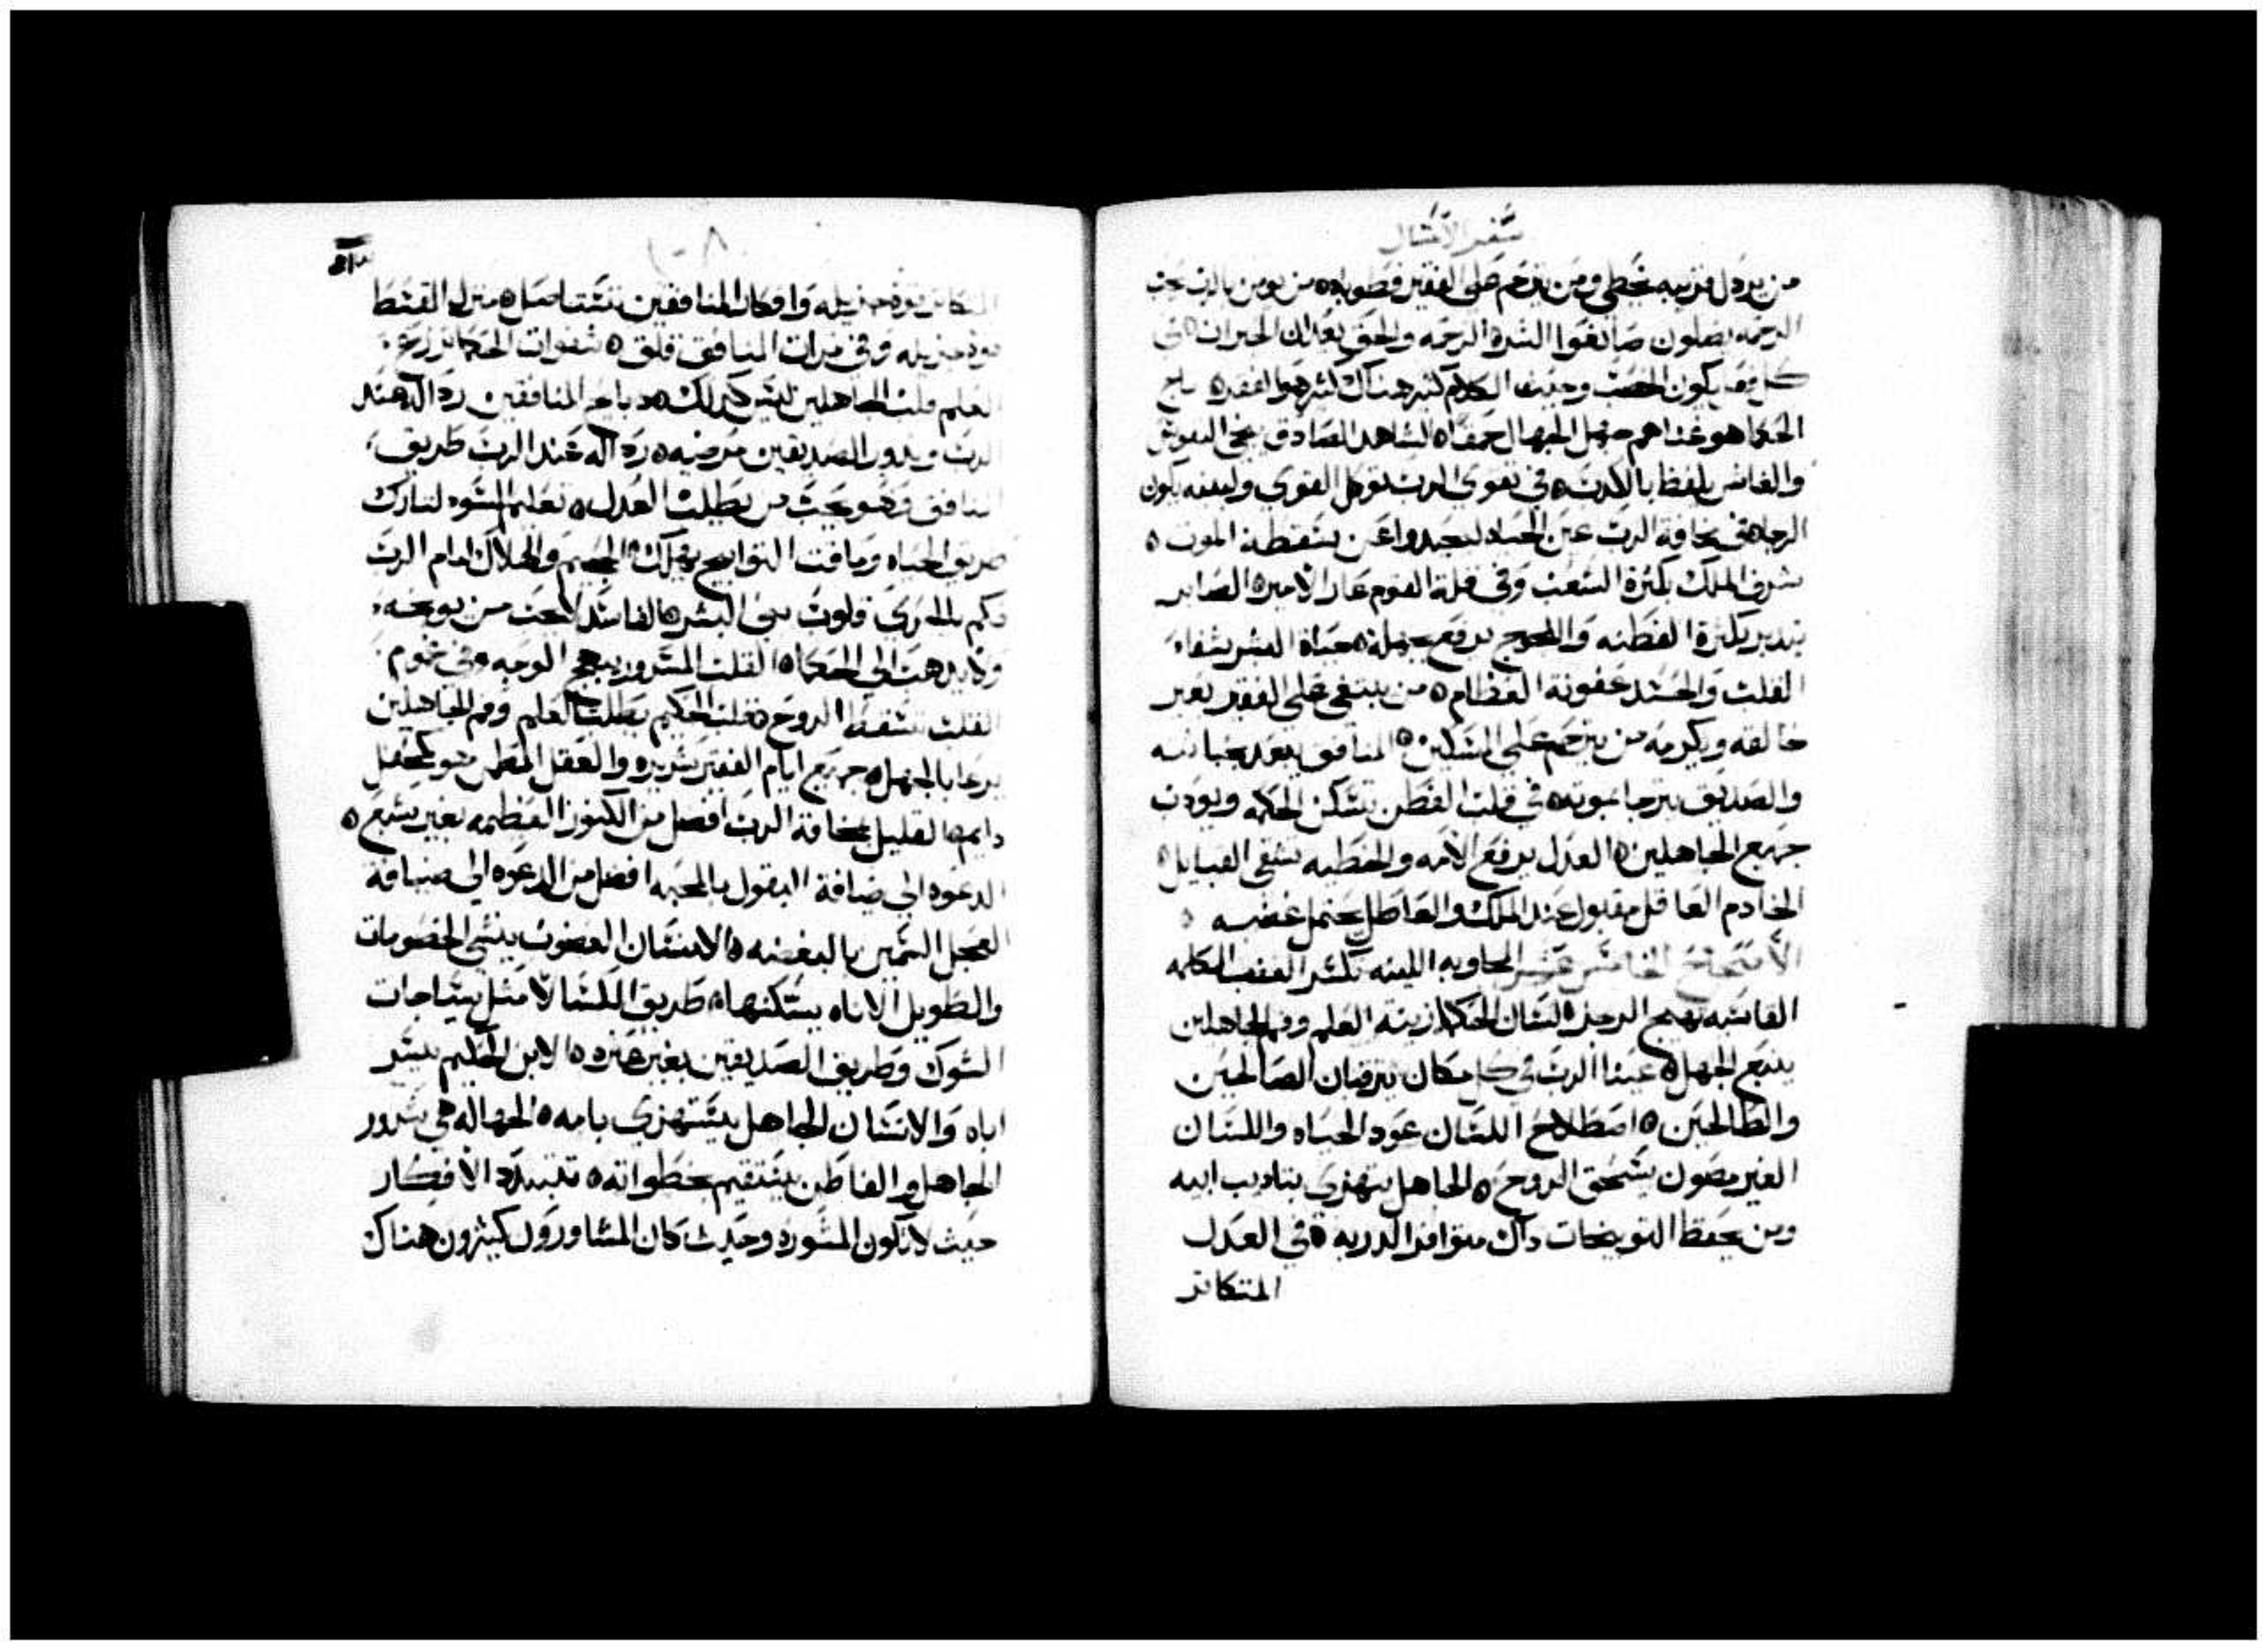 سفر الامثال
من يردل قريبه يخطي ومن يترحم على الفقير فطوباه من يومن بالرب يحب
الرحمه يضلون صانعوا الشر الرحمه والحق يعدان الخيرات في
كل يكون الخصب وحيث الكلام كثير هناك كثير هو الفقر تاج
الحكما هو غناهم جهل الجهال حمقاه الشاهد الصادق ينجي النفوس
والغاش يلفظ بالكدب في تقوى الرب توكل القوي ولبنيه يكون
الرجا مخافة الرب عين الحياه ليحيدوا عن سقطة الموت
شرف الملك بكثرة الشعب وفي قلة القوم عار الامير الصابر
يتدبر بكثرة الفطنه واللجوج يرفع جهله حياة البشر شفاء
القلب والحسد عفونة العظام من يبتغي على الفقير يعير
خالقه ويكرمه من يترحم على المسكين المنافق يبعد بخباثته
والصديق يترجا بموته في قلب الفطن تسكن الحكمه ويودب
جميع الجاهلين العدل يرفع الامه والخطيه تشقي القبايل
الخادم العاقل مقبول عند الملك والعاطل يحتمل غضبه
الاصحاح الخامس عشر المجاوبه اللينه تكسر الغضب الكلمه
القاسيه تهيج الرجز لسان الحكما زينة العلم وفم الجاهلين
ينبع الجهل عينا الرب في كل مكان يترقبان الصالحين
والطالحين اصطلاح اللسان عود الحياه واللسان
الغير مصون يسحق الروح الجاهل يتهزى بتاديب ابيه
ومن يحفظ التوبيخات داك متوافر الدربه في العدل
المتكاثر
١٠٨
المتكاثر قوه جزيله وافكار المنافقين تستاصل منزل القسط
قوه جزيله وفي ثمرات المنافق قلق شفوات الحكما تزرع
العلم قلب الجاهلين ليس كدلك دبايح المنافقين ردالة عند
الرب وندور الصديقين مرضيه ردالة عند الرب طريق
المنافق وهو يحب من يطلب العدل تعليم السو لتارك
طريق الحياه وماقت التوابيخ يهلك الجحيم والهلاك امام الرب
فكم بالحري قلوب بني البشر الفاسد لا يحب من يوبخه
ولا يدهب الى الحكما القلب المسرور يبهج الوجه وفي غموم
القلب تسقط الروح قلب الحكيم يطلب العلم وفم الجاهلين
يرعا بالجهل جميع ايام الفقير شريره والعقل المطمن هو كمحفل
دايم القليل بمخافة الرب افضل من الكنوز العظيمه بغير شبع
الدعوه الى ضيافة البقول بالمحبه افضل من الدعوه الى ضيافة
العجل السمين بالبغضه الانسان الغضوب ينشي الخصومات
والطويل الاناه يسكنها طريق الكسالا مثل سياجات
الشوك وطريق الصديقين بغير عتره الابن الحكيم يسر
اباه والانسان الجاهل يستهزي بامه الجهاله هي سرور
الجاهل والفاطن يستقيم بخطواته تتبدد الافكار
حيث لا تكون المشوره وحيث كان المشاورون كثيرون هناك